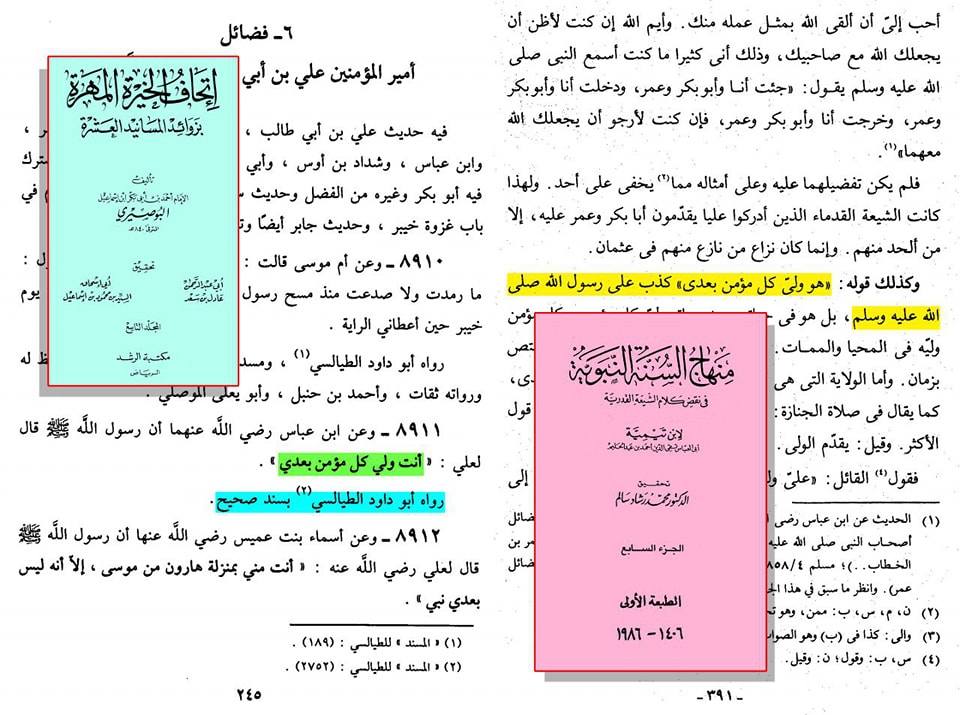 أحب إلىّ أن ألقى الله بمثل عمله منك. وأيم الله إن كنت لأظن أن
يجعلك الله مع صاحبيك، وذلك أنى كثيرا ما كنت أسمع النبى صلى
الله عليه وسلم يقول: «جئت أنا وأبو بكر وعمر، ودخلت أنا وأبو بكر
وعمر، وخرجت أنا وأبو بكر وعمر، فإن كنت لأرجو أن يجعلك الله
معهما»(١).
فلم يكن تفضيلهما عليه وعلى أمثاله مما(٢) يخفى على أحد. ولهذا
كانت الشيعة القدماء الذين أدركوا عليا يقدّمون أبا بكر وعمر عليه، إلا
من ألحد منهم. وإنما كان نزاع من نازع منهم فى عثمان.
وكذلك قوله: «هو ولىّ كل مؤمن بعدى» كذب على رسول الله صلى
الله عليه وسلم، بل هو فى
مؤمن
وليّه فى المحيا والممات.
تص
بزمان. وأما الولاية التى هى
دى،
كما يقال فى صلاة الجنازة:
قول
الأكثر. وقيل: يقدّم الولى.
فقول(٤) القائل: «علىّ
إلى
(١) الحديث عن ابن عباس رضى
ضائل
أصحاب النبى صلى الله عليه
مر بن
الخطاب..)؛ مسلم ٨٥٨/٤
ضائل
عمر). وانظر ما سبق فى هذا
(٢) ن، م، س، ب: ممن، وهو
(٣) والى: كذا فى (ب) وهو الصواب
(٤) س، ب: وقول؛ ن: وقيل.
-٣٩١-
منهاج السنة النبوية
فى نقض كلام الشيعة القدرية
لابن تيمية
أبى العباس تقى الدين أحمد بن عبد الحليم
تحقيق
الدكتور محمد رشاد سالم
الجزء السابع
الطبعة الأولى
١٤٠٦ - ١٩٨٦
٦ـ فضائل
أمير المؤمنين علي بن أبي
فيه حديث علي بن أبي طالب ،
ر ،
وابن عباس ، وشداد بن أوس ، وأبي
ترك
فيه أبو بكر وغيره من الفضل وحديث
في
باب غزوة خيبر ، وحديث جابر أيضًا
٨٩١٠ ـ وعن أم موسى قالت :
ول :
ما رمدت ولا صدعت منذ مسح رسول
يوم
خيبر حين أعطاني الراية .
رواه أبو داود الطيالسي(١) ، ومسد
ظ له
ورواته ثقات ، وأحمد بن حنبل ، وأبو يعلى الموصلي .
٨٩١١ ـ وعن ابن عباس رضي اللَّه عنهما أن رسول اللَّه ﷺ قال
لعلي : « أنت ولي كل مؤمن بعدي » .
رواه أبو داود الطيالسي(٢) بسند صحيح.
٨٩١٢ ـ وعن أسماء بنت عميس رضي اللَّه عنها أن رسول اللَّه ﷺ
قال لعلي رضي اللَّه عنه : « أنت مني بمنزلة هارون من موسى ، إلاّ أنه ليس
بعدي نبي » .
(١) « المسند » للطيالسي : (١٨٩) .
(٢) « المسند » للطيالسي : (٢٧٥٢) .
٢٤٥
إتحاف الخيرة المهرة
بزوائد المسانيد العشرة
تأليف
الإمام أحمد بن أبي بكر ابن إسماعيل
البوصيري
المتوفى ٨٤٠ هـ
تحقيق
أبي عبد الرحمن
عادل بن سعد
أبي إسحاق
السيد بن محمود بن إسماعيل
مكتبة الرشد
الرياض